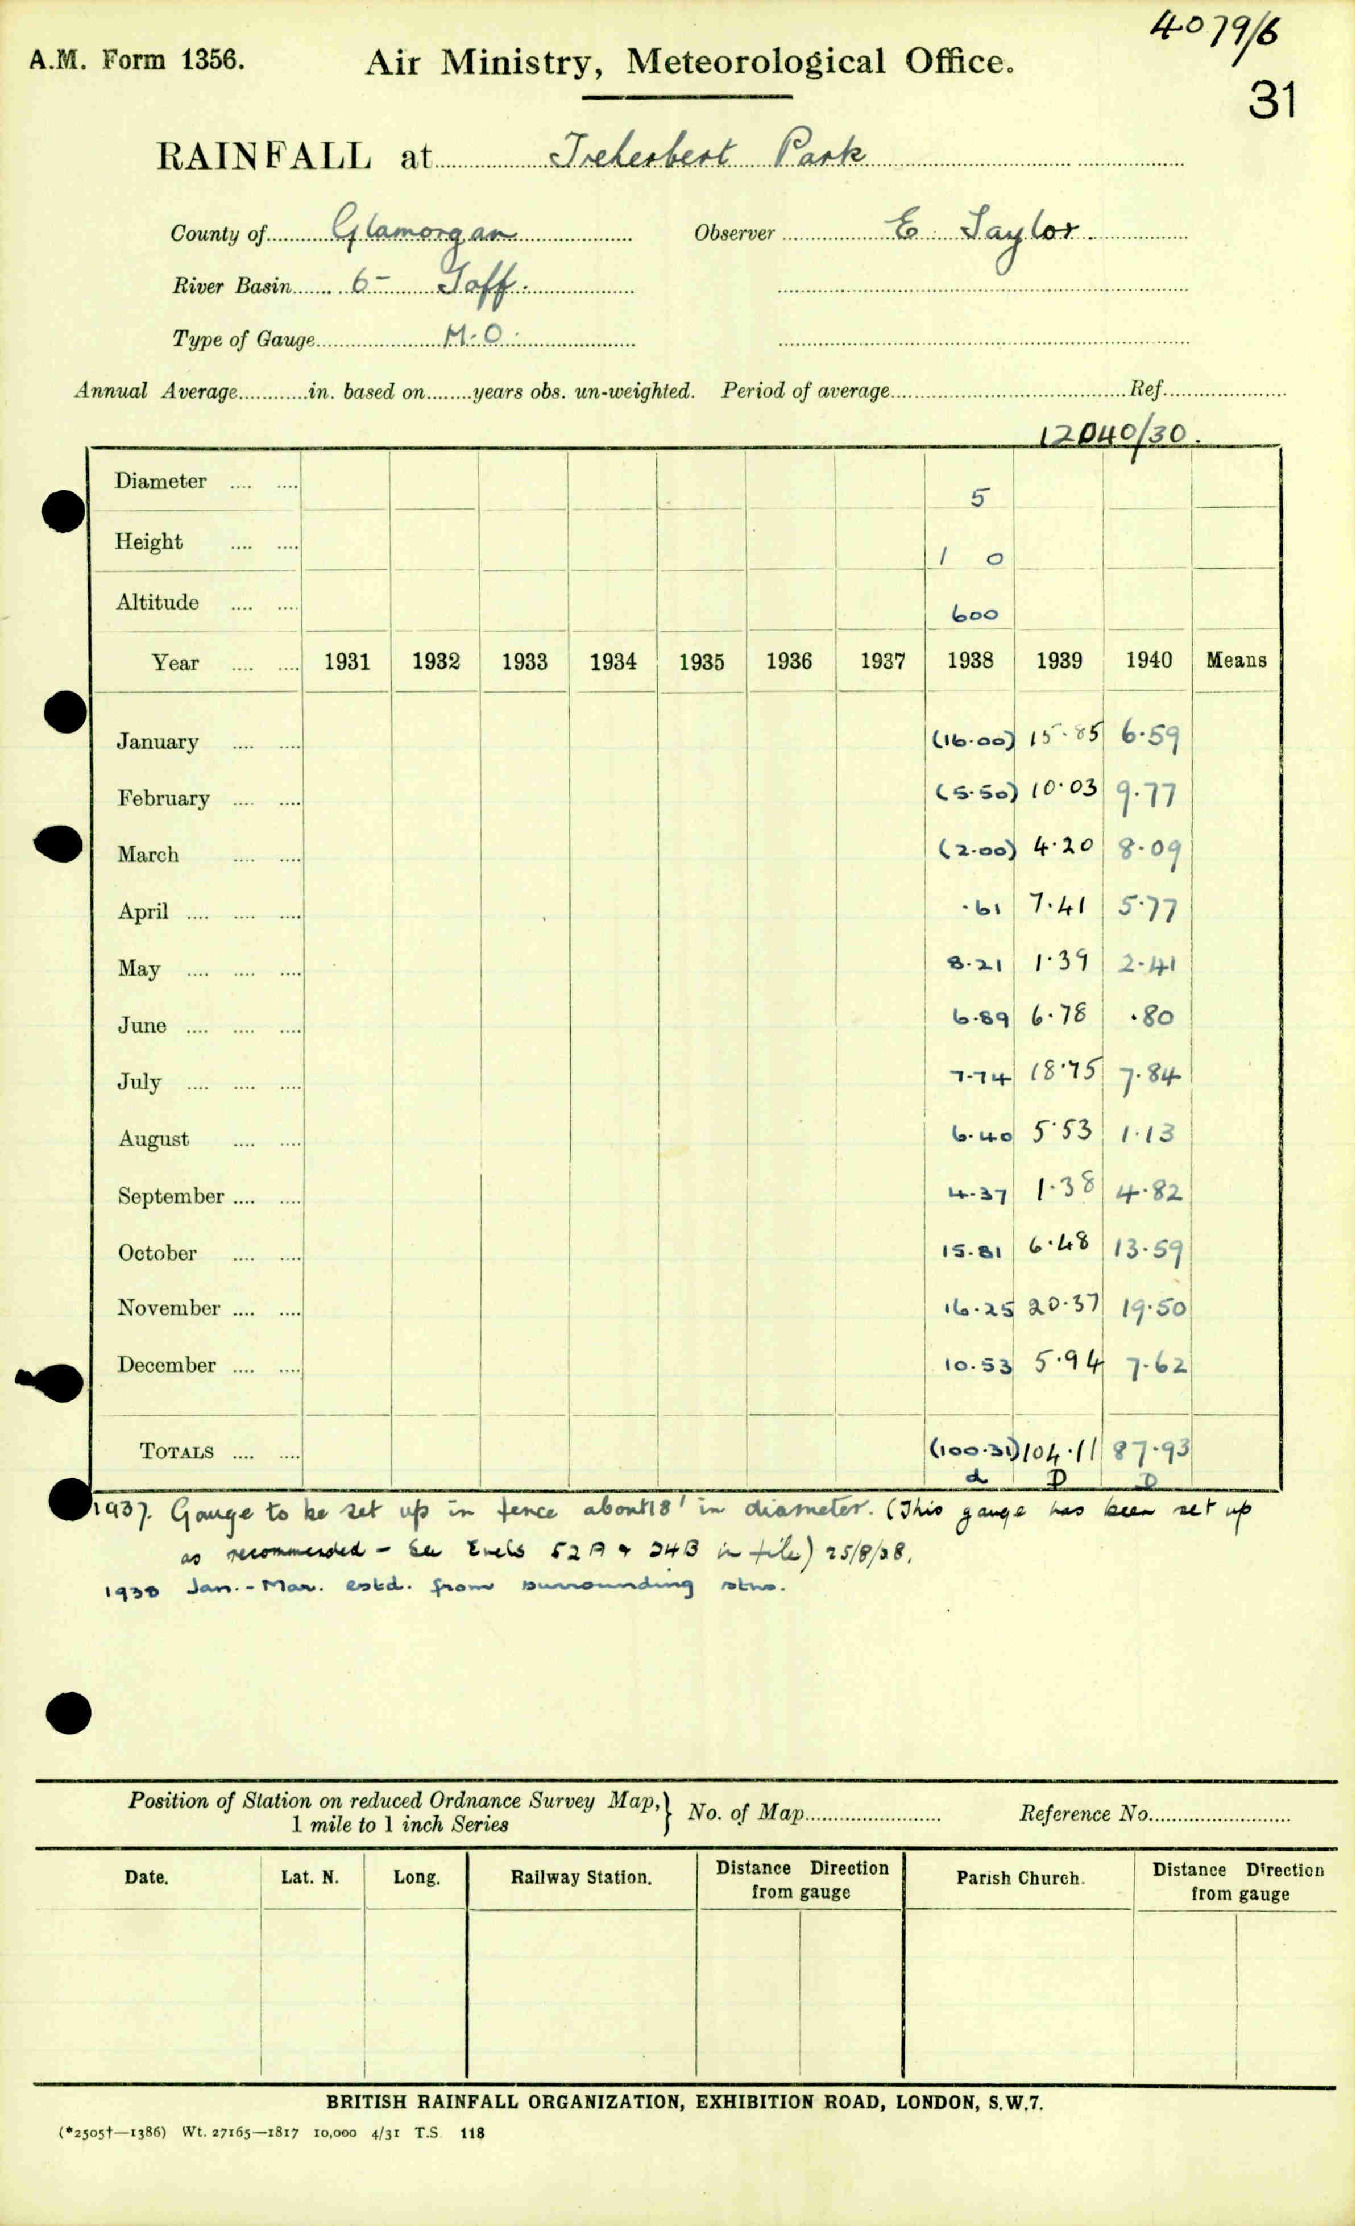 4079/6
A.M. Form 1356. Air Ministry, Meteorological Office.
31
RAINFALL at Treherbert Park
County of Glamorgan Observer E. Taylor.
River Basin 6- Taff.
Type of Gauge M.O.
Annual Average in. based on years obs. un-weighted. Period of average Ref.
12040/30.
Diameter 5
Height 1 0
Altitude 600
Year 1931 1932 1933 1934 1935 1936 1937 1938 1939 1940 Means
January (16.00) 15.85 6.59
February (5.50) 10.03 9.77
March (2.00) 4.20 8.09
April .61 7.41 5.77
May 8.21 1.39 2.41
June 6.89 6.78 .80
July 7.74 18.75 7.84
August 6.40 5.53 1.13
September 4.37 1.38 4.82
October 15.81 6.48 13.59
November 16.25 20.37 19.50
December 10.53 5.94 7.62
TOTALS (100.31) 104.11 87.93
d D D
1937. Gauge to be set up in fence about 18' in diameter. (This gauge has been set up
as recommended - See Encls 52A & 24B in file) 25/8/38.
1938 Jan.-Mar. estd. from surrounding stns.
Position of Station on reduced Ordnance Survey Map,} No. of Map Reference No.
1 mile to 1 inch Series
Date. Lat. N. Long. Railway Station. Distance Direction from gauge Parish Church. Distance Direction from gauge
BRITISH RAINFALL ORGANIZATION, EXHIBITION ROAD, LONDON, S.W.7.
(*2505†—1386) Wt. 27165—1817 10,000 4/31 T.S. 118